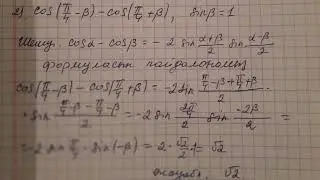 2) cos(π/4 - β) - cos(π/4 + β), sinβ = 1
Шешуі. cosα - cosβ = -2 sin (α+β)/2 sin (α-β)/2
формуласын пайдаланамыз
cos(π/4 - β) - cos(π/4 + β) = -2 sin (π/4 - β + π/4 + β)/2 ·
· sin (π/4 - β - π/4 - β)/2 = -2 sin (2π/4)/2 sin (-2β)/2 =
= -2 sin π/4 · sin(-β) = 2 · √2/2 · 1 = √2
Жауабы. √2